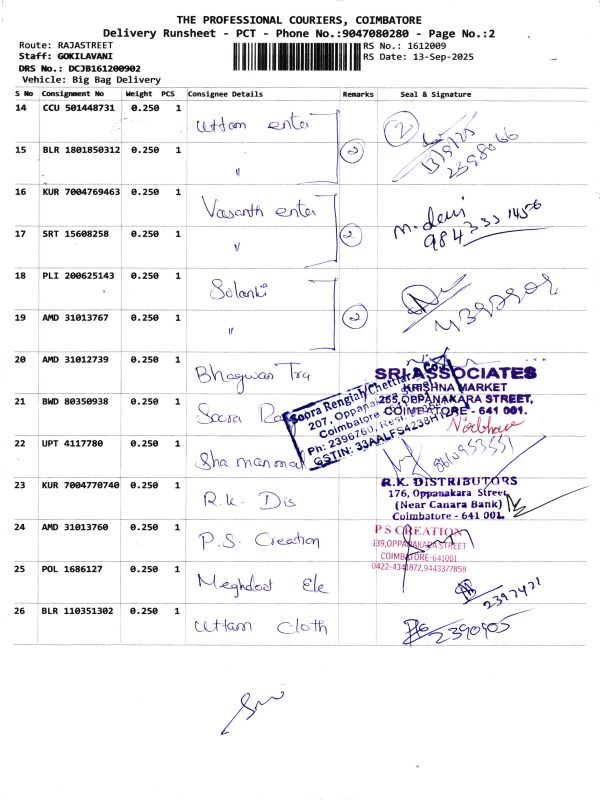 THE PROFESSIONAL COURIERS, COIMBATORE
Delivery Runsheet - PCT - Phone No.:9047080280 - Page No.:2
Route: RAJASTREET
RS No.: 1612009
Staff: GOKILAVANI
RS Date: 13-Sep-2025
DRS No.: DCJB161200902
Vehicle: Big Bag Delivery
S No Consignment No Weight PCS Consignee Details Remarks Seal & Signature
14 CCU 501448731 0.250 1 Uttam enter 2
13/9/25
15 BLR 1801850312 0.250 1 " 2
2398066
16 KUR 7004769463 0.250 1 Vasanth enter M. devi
17 SRT 15608258 0.250 1 " 2
18 PLI 200625143 0.250 1 Solanki
19 AMD 31013767 0.250 1 " 2
20 AMD 31012739 0.250 1 Bhagwan Tra
SRI ASSOCIATES
KRISHNA MARKET
265, OPPANAKARA STREET,
COIMBATORE - 641 001.
21 BWD 80350938 0.250 1 Soora
Soora Rengiah Chettiar
207, Oppana
Coimbatore
Ph: 2396760,
GSTIN: 33AALFS4238H1
22 UPT 4117780 0.250 1 Sha manmal
8610953551
23 KUR 7004770740 0.250 1 R.K. Dis
R.K. DISTRIBUTORS
176, Oppanakara Street,
(Near Canara Bank)
Coimbatore - 641 001.
24 AMD 31013760 0.250 1 P.S. Creation
P S CREATION
139,OPPANAKARA STREET
COIMBATORE-641001
0422-4341872,9443377858
25 POL 1686127 0.250 1 Meghdoot Ele
2397471
26 BLR 110351302 0.250 1 Uttam Cloth 2390905